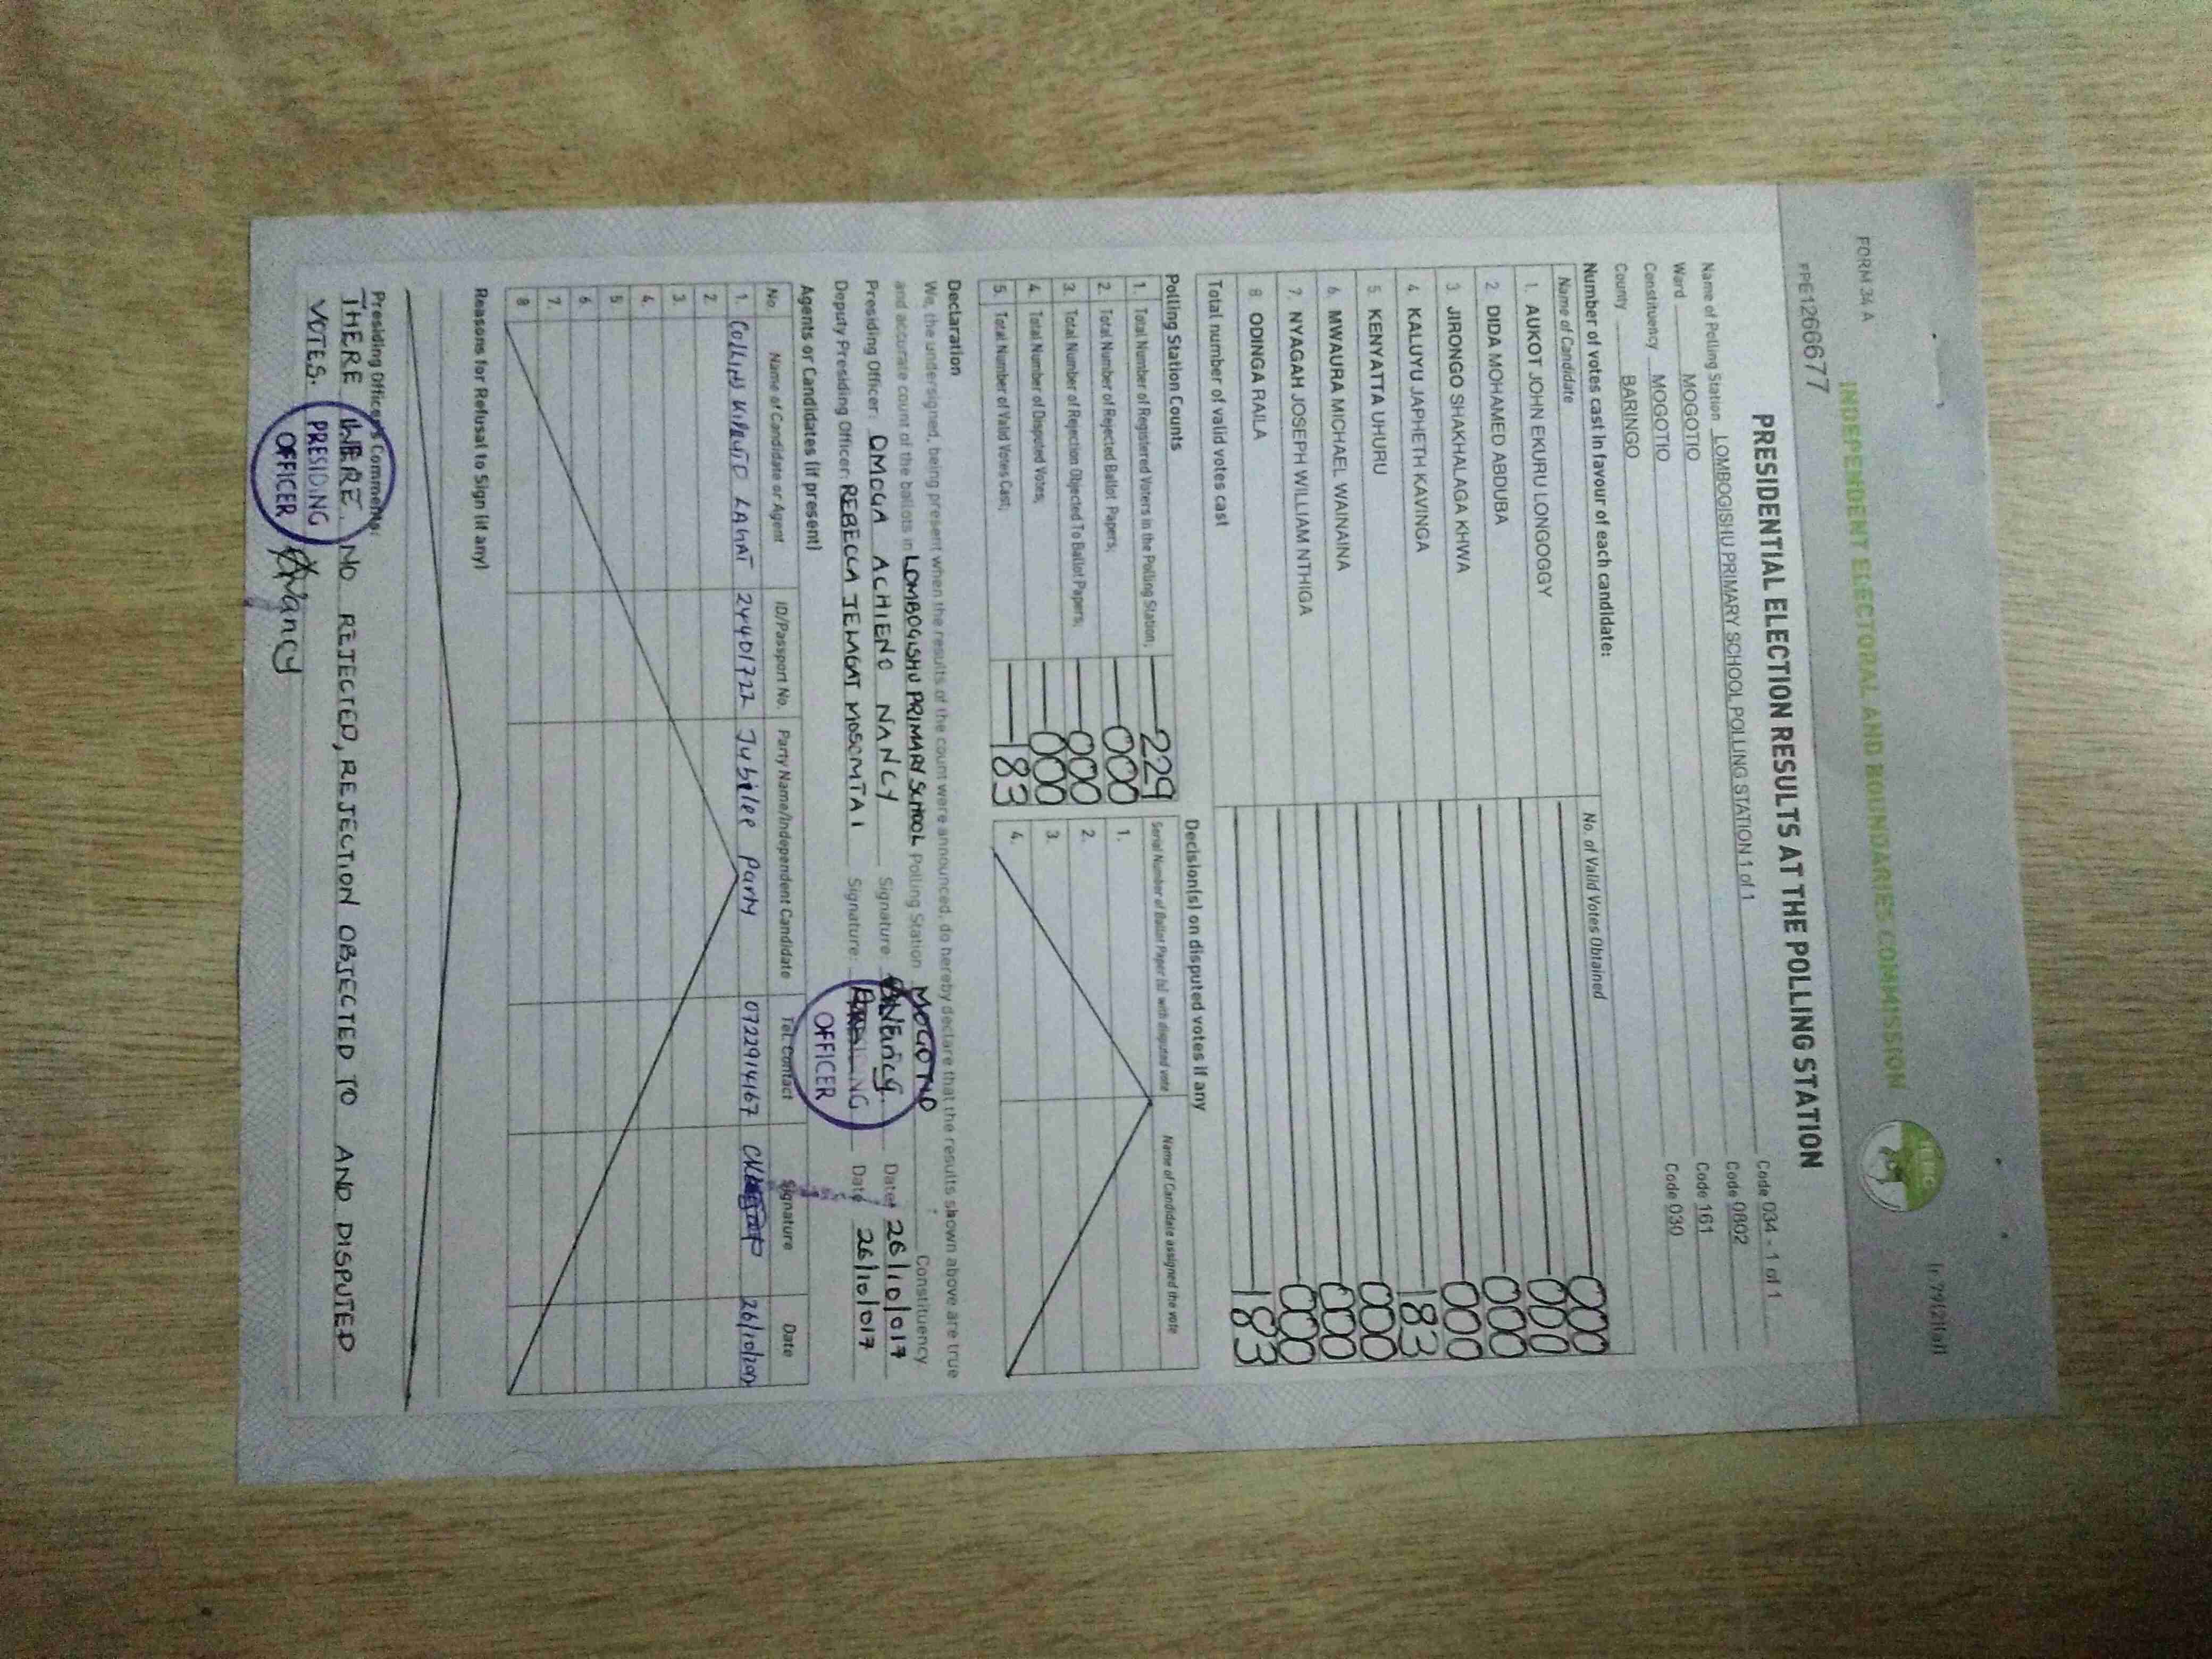 FORM 34 A
r. 79(2)(a)
INDEPENDENT ELECTORAL AND BOUNDARIES COMMISSION
IEBC
PPE1266677
PRESIDENTIAL ELECTION RESULTS AT THE POLLING STATION
Name of Polling Station LOMBOGISHU PRIMARY SCHOOL POLLING STATION 1 of 1 Code 034 - 1 of 1
Ward MOGOTIO Code 0802
Constituency MOGOTIO Code 161
County BARINGO Code 030
Number of votes cast in favour of each candidate:
Name of Candidate No. of Valid Votes Obtained
1. AUKOT JOHN EKURU LONGOGGY 000
2. DIDA MOHAMED ABDUBA 000
3. JIRONGO SHAKHALAGA KHWA 000
4. KALUYU JAPHETH KAVINGA 000
5. KENYATTA UHURU 183
6. MWAURA MICHAEL WAINAINA 000
7. NYAGAH JOSEPH WILLIAM NTHIGA 000
8. ODINGA RAILA 000
Total number of valid votes cast 183
Polling Station Counts
1. Total Number of Registered Voters in the Polling Station; 229
2. Total Number of Rejected Ballot Papers; 000
3. Total Number of Rejection Objected To Ballot Papers; 000
4. Total Number of Disputed Votes; 000
5. Total Number of Valid Votes Cast; 183
Decision(s) on disputed votes if any
Serial Number of Ballot Paper (s) with disputed vote Name of Candidate assigned the vote
1.
2.
3.
4.
Declaration
We, the undersigned, being present when the results of the count were announced, do hereby declare that the results shown above are true
and accurate count of the ballots in LOMBOGISHU PRIMARY SCHOOL Polling Station MOGOTIO Constituency
Presiding Officer: OMOGA ACHIENO NANCY Signature: Nancy. Date: 26/10/017
Deputy Presiding Officer: REBECCA JEWAGAT MOSOMTAI Signature: Date 26/10/017
PRESIDING
OFFICER
Agents or Candidates (if present)
No Name of Candidate or Agent ID/Passport No. Party Name/Independent Candidate Tel. Contact Signature Date
1. COLLINS LAGAT 24401722 Jubilee Party 0722914167 26/10/2017
2.
3.
4.
5.
6.
7.
8
Reasons for Refusal to Sign (if any)
Presiding Officer's Comments:
THERE WERE NO REJECTED, REJECTION OBJECTED TO AND DISPUTED
VOTES.
PRESIDING
OFFICER
Nancy